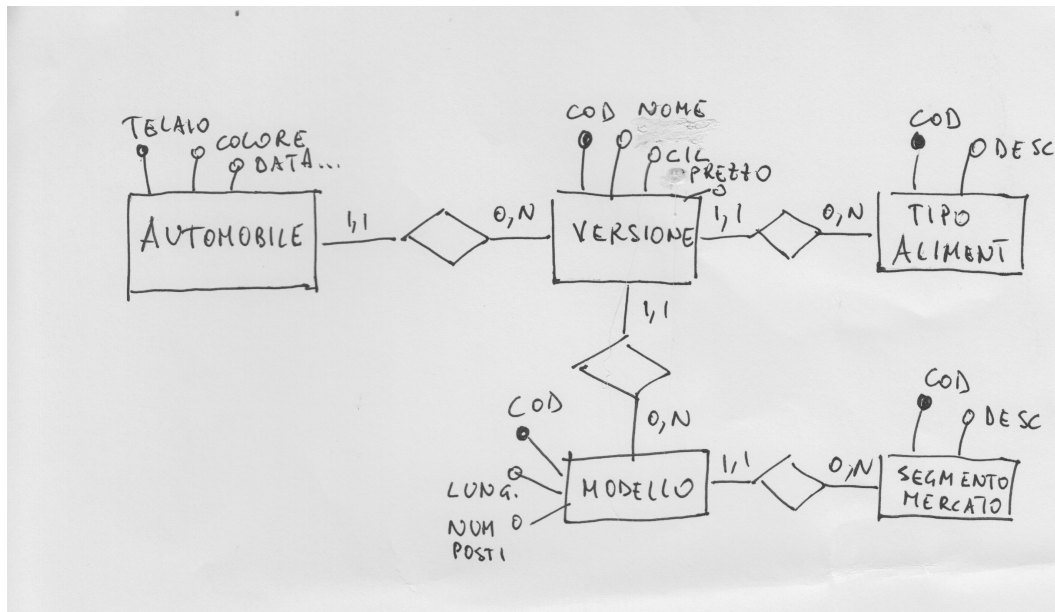 TELAIO
COLORE
DATA...
AUTOMOBILE
1,1
0,N
COD NOME
CIL
PREZZO
VERSIONE
1,1
0,N
COD
DESC
TIPO
ALIMENT
1,1
0,N
COD
LUNG.
NUM
POSTI
MODELLO
1,1
0,N
COD
DESC
SEGMENTO
MERCATO